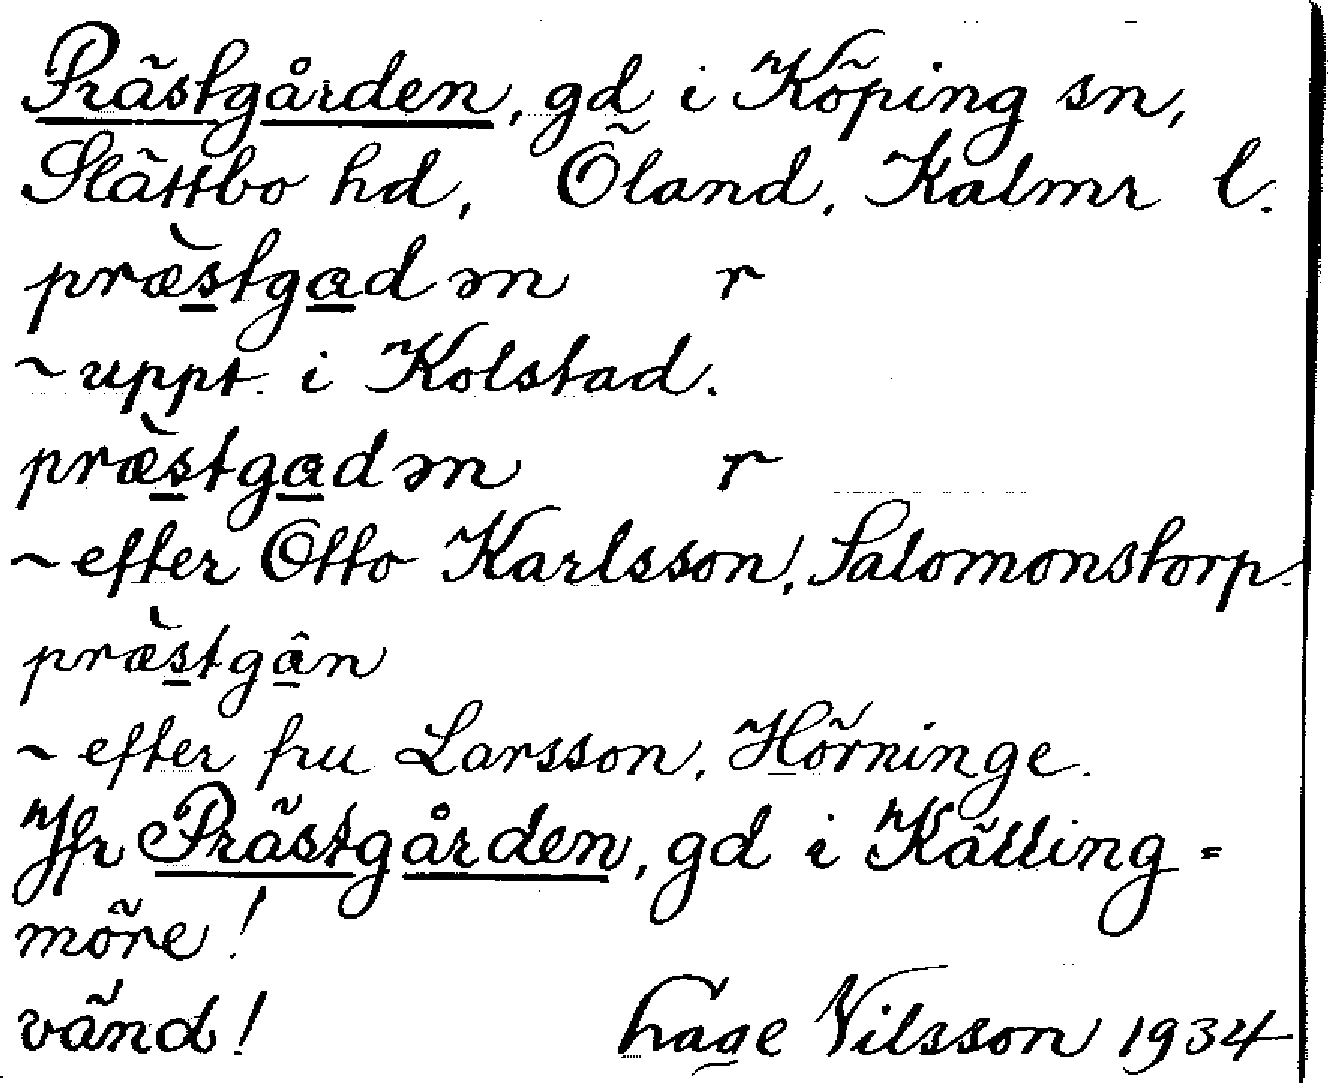 Prästgården, gd i Köping sn,
Slättbo hd, Öland, Kalmr l.
præ̀stgadən r
~ uppt. i Kolstad.
præ̀stgadən r
~ efter Otto Karlsson, Salomonstorp.
præ̀stgân
~ efter fru Larsson, Hörninge.
Jfr Prästgården, gd i Källing=
möre!
vänd! Hage Nilsson 1934